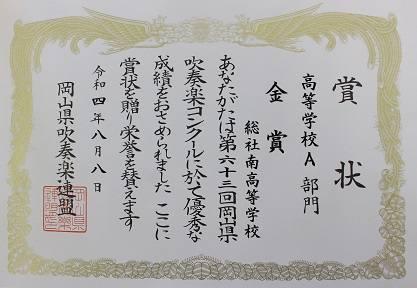 賞状
高等学校A部門
金賞
総社南高等学校
あなたがたは第六十三回岡山県
吹奏楽コンクールに於て優秀な
成績をおさめられました ここに
賞状を贈り栄誉を讃えます
令和四年八月八日
岡山県吹奏楽連盟